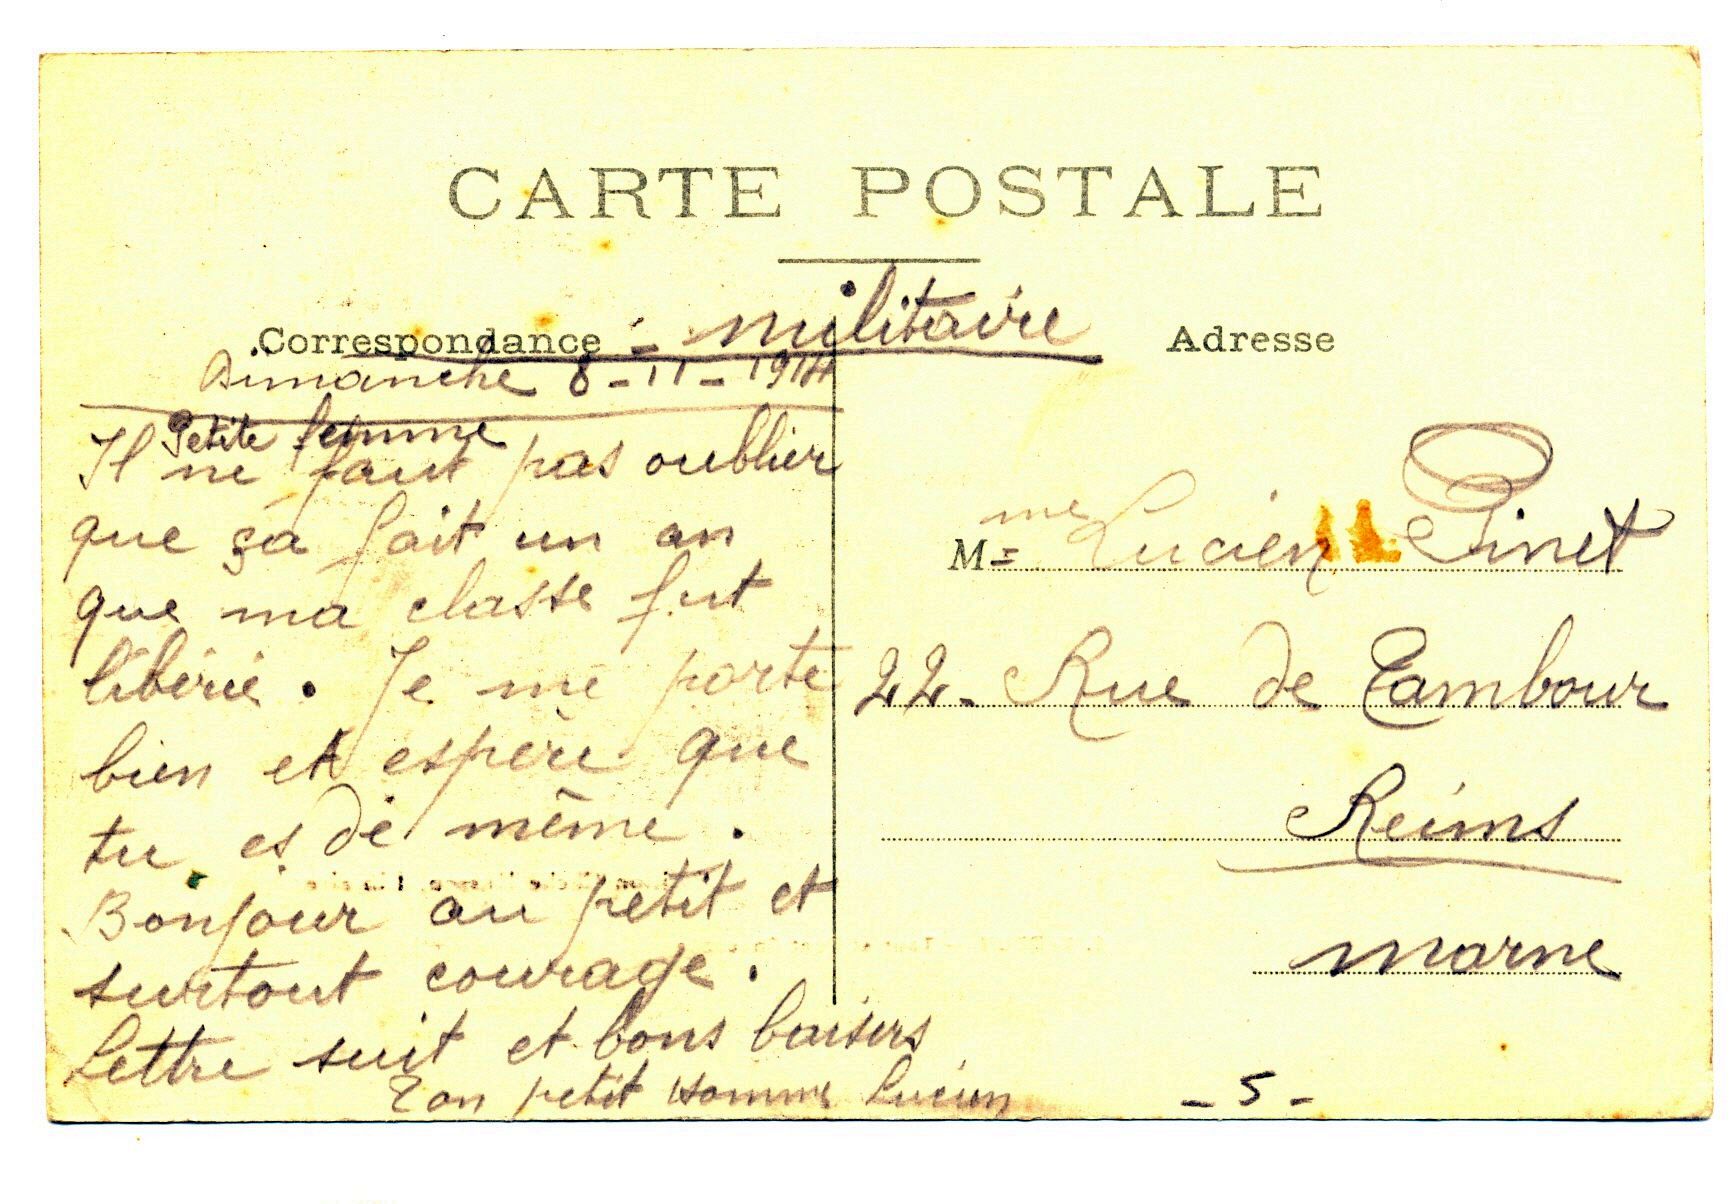 CARTE POSTALE
Correspondance - militaire
Adresse
Dimanche 8-11-1914
Petite femme
Il ne faut pas oublier
que ça fait un an
que ma classe fut
libérie. Je me porte
bien et espère que
tu es de même.
Bonjour au petit et
surtout courage.
Lettre suit et bons baisers
Ton petit Homme Lucien
Mme Lucien Pinet
22 - Rue de Tambour
Reims
Marne
- 5 -